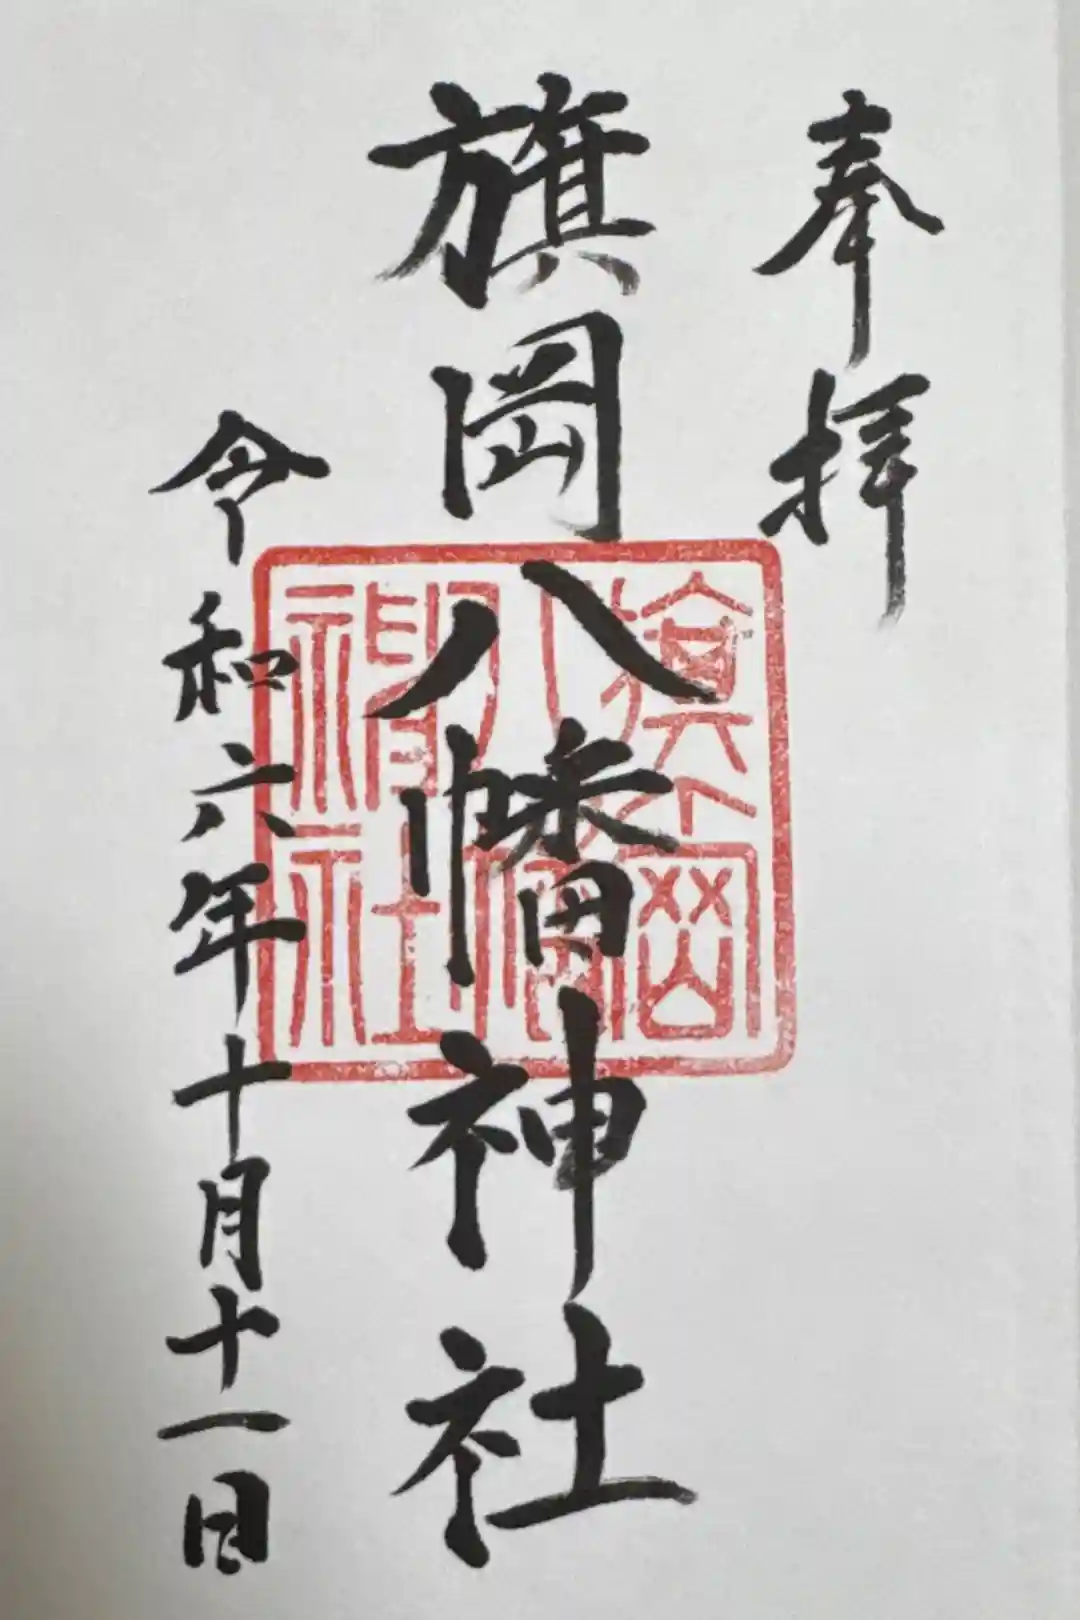 奉拝
旗岡八幡神社
令和六年十月十一日
旗岡
八幡
神社